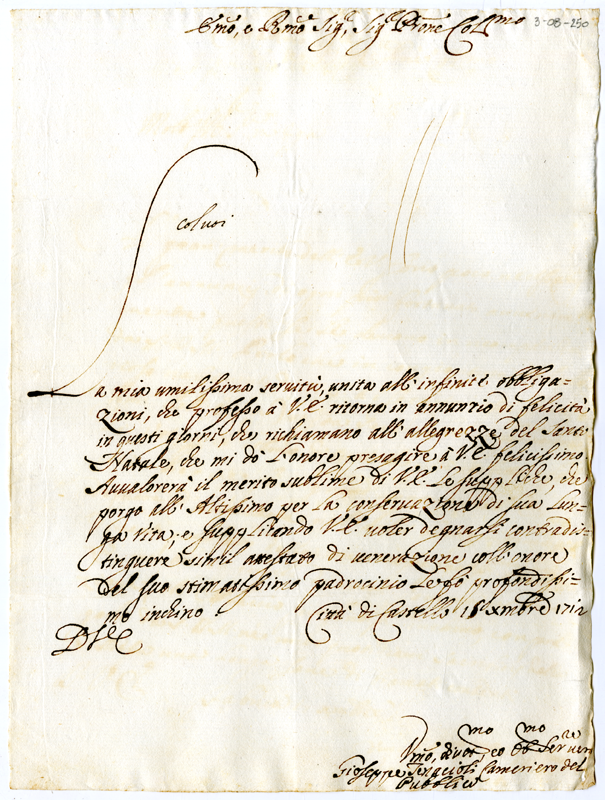 Emo, e Rmo Sig, Sig Prone Colmo
3-08-250
coluoi
La mia umilissima servitù, unita all' infinite obbliga=
zioni, che professo à V.E. ritorna in annunzio di felicità
in questi giorni, che richiamano all' allegrezze del Santo
Natale, che mi dò l'onore presagire à V.E. felicissimo
Avvalorerà il merito sublime di V.E. le suppliche, che
porgo all' Altissimo per la conservazione di sua lun=
ga vita. e supplicando V.E. voler degnarsi contradis=
tinguere simil attestato di venerazione coll' onore
del suo stimatissimo padrocinio le fò profondissi=
mo inchino Città di Castello 15 Xmbre 1712
D V E
Vmo, divot mo ed Ob mo Serre vero
Gioseppe Cameriero del
Pubblico